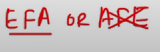 EFA OR AFE